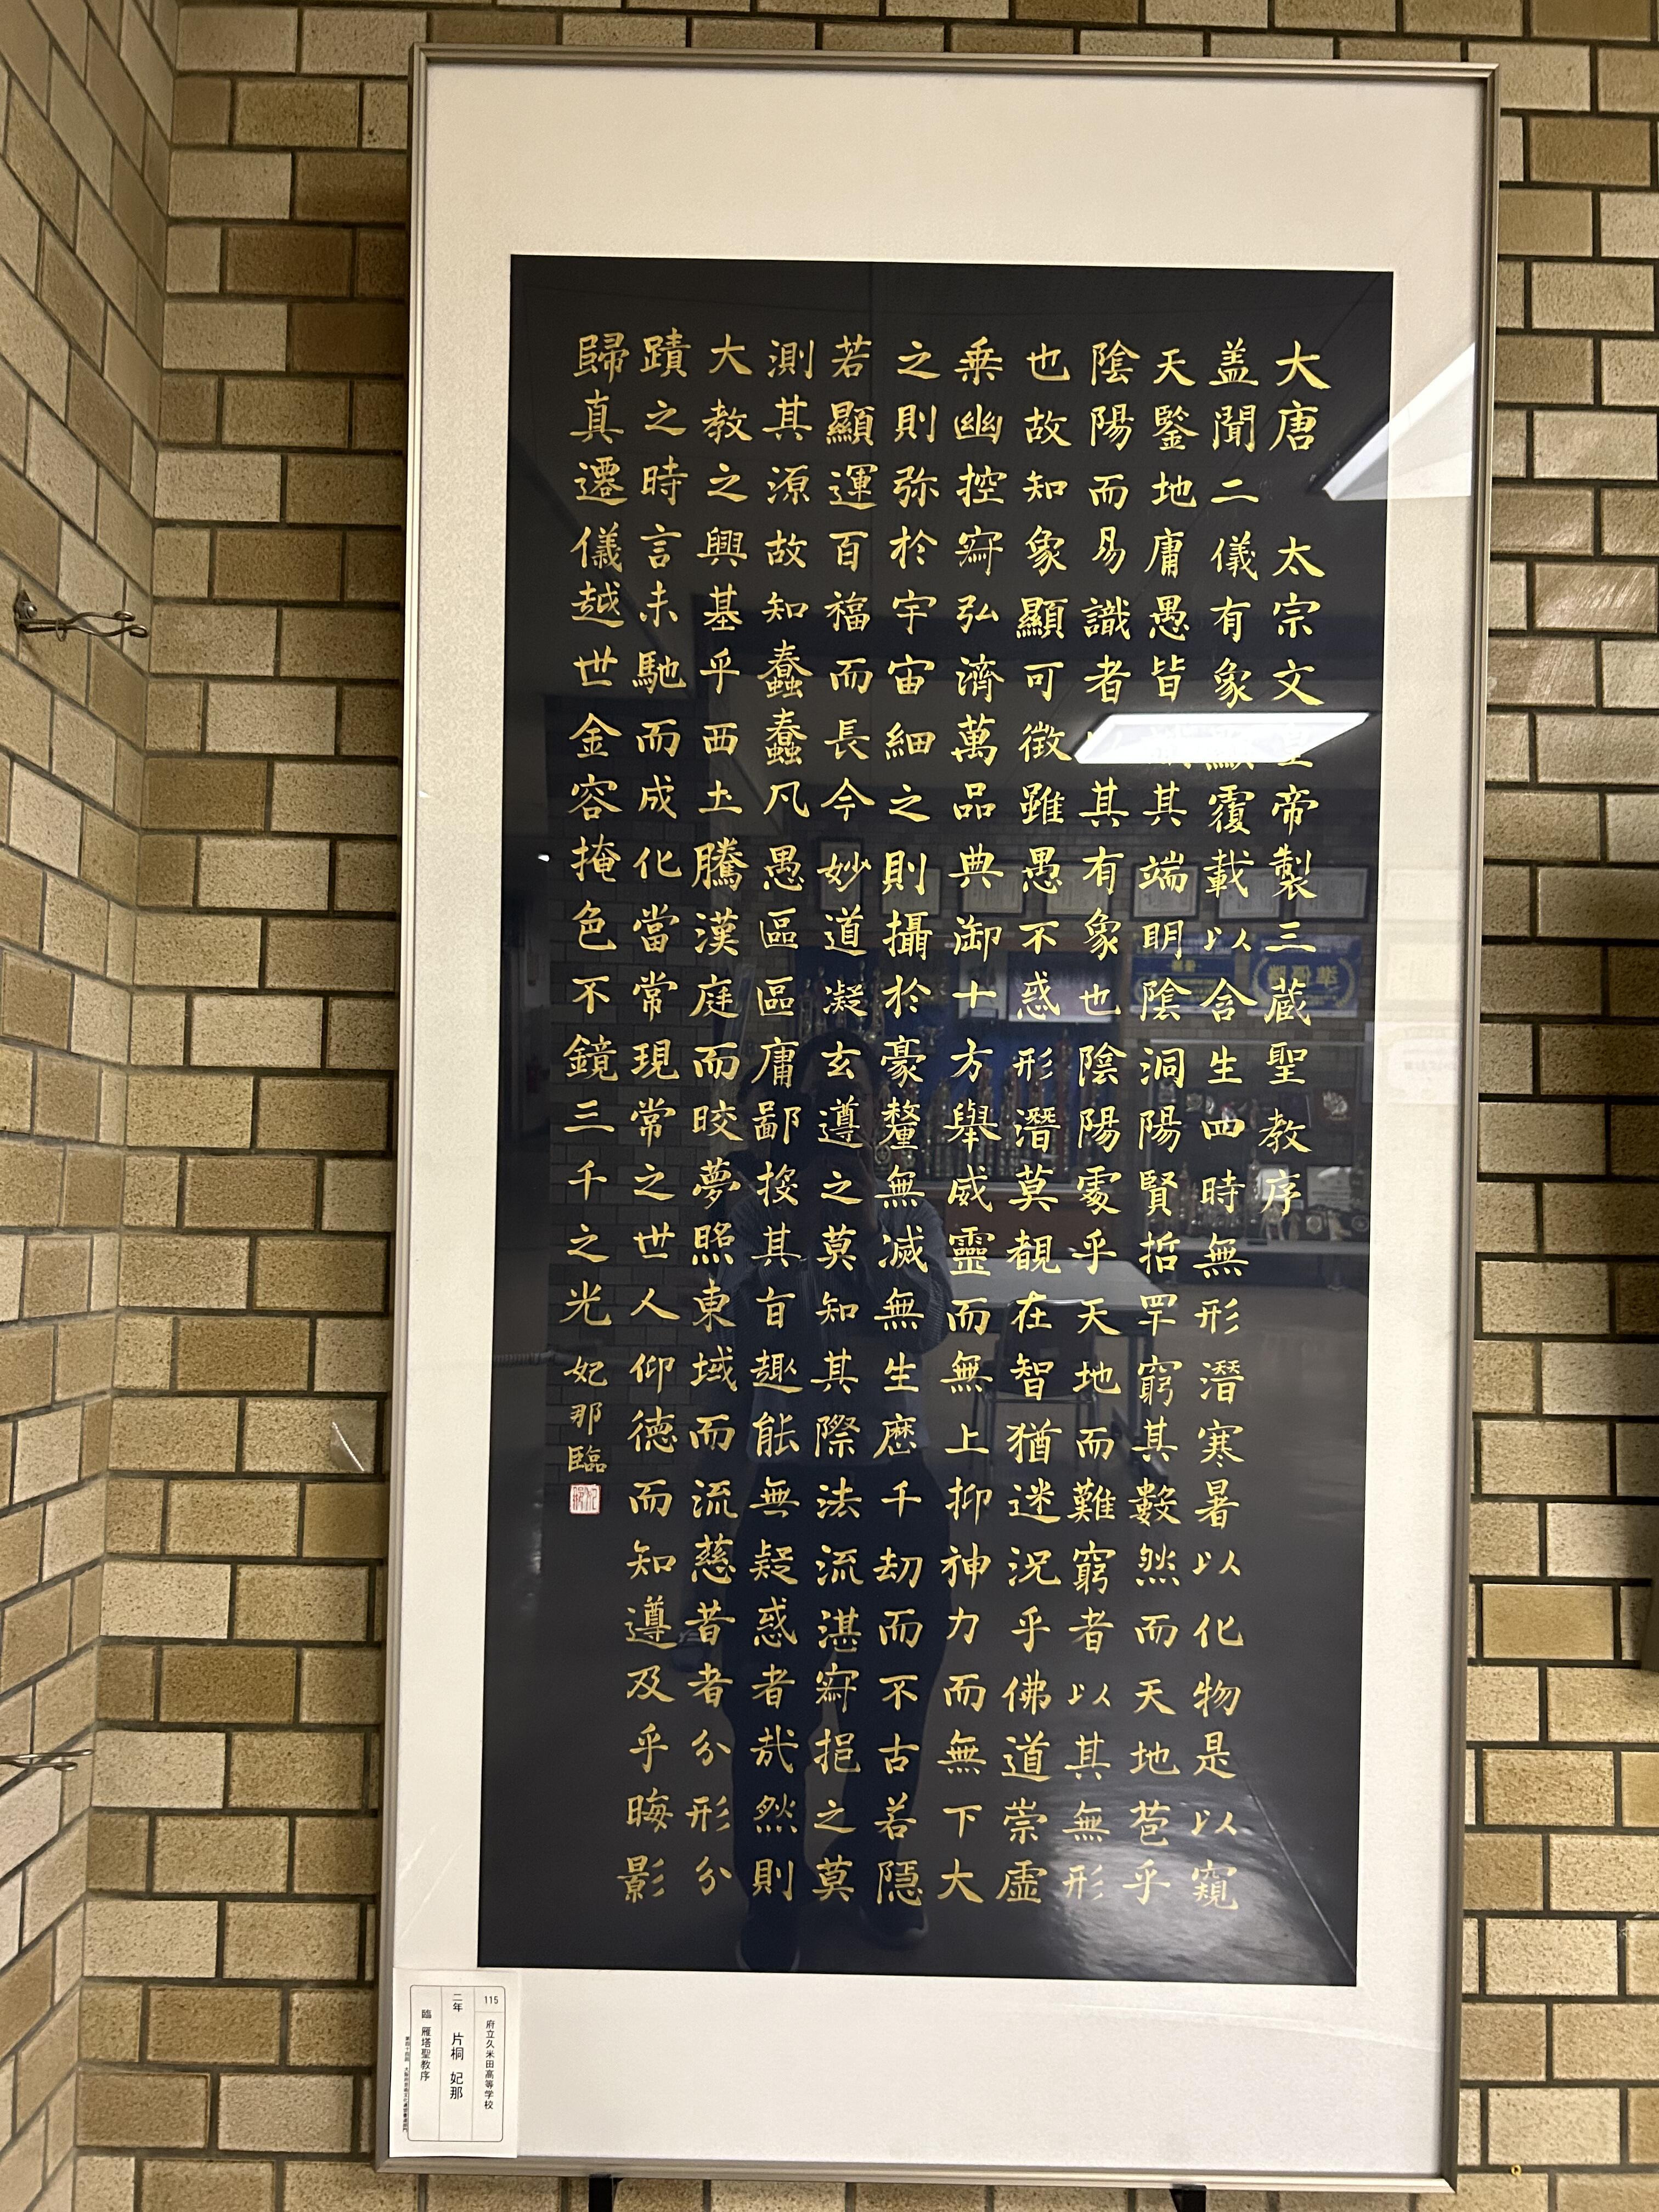 大唐 太宗文皇帝製三蔵聖教序
盖聞二儀有象顯覆載以含生四時無形潛寒暑以化物是以窺
天鑒地庸愚皆其端明陰洞陽賢哲罕窮其數然而天地苞乎
陰陽而易識者其有象也陰陽處乎天地而難窮者以其無形
也故知象顯可徵雖愚不惑形潛莫覩在智猶迷況乎佛道崇虚
乗幽控寂弘濟萬品典御十方舉威靈而無上抑神力而無下大
之則弥於宇宙細之則攝於豪釐無滅無生歷千劫而不古若隠
若顯運百福而長今妙道凝玄遵之莫知其際法流湛寂挹之莫
測其源故知蠢蠢凡愚區區庸鄙投其旨趣能無疑惑者哉然則
大教之興基乎西土騰漢庭而皎夢照東域而流慈昔者分形分
蹟之時言未馳而成化當常現常之世人仰德而知遵及乎晦影
歸真遷儀越世金容掩色不鏡三千之光 妃那臨
115 府立久米田高等学校
二年 片桐 妃那
臨 雁塔聖教序